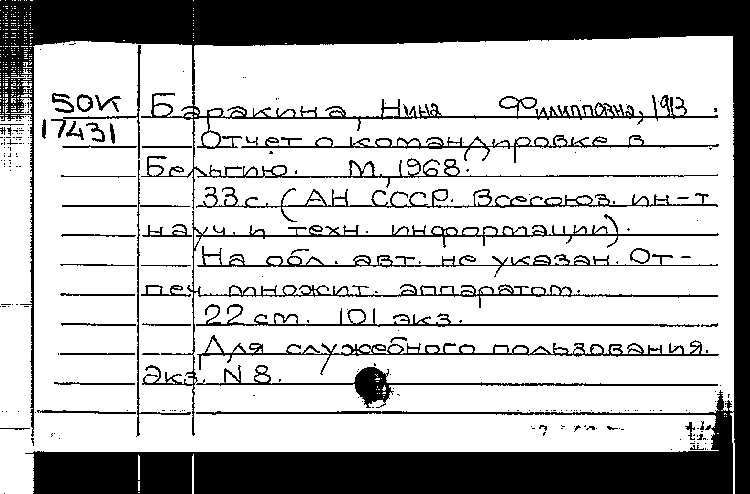 50К Баракина, Нина Филипповна, 1913.
17431 Отчет о командировке в
Бельгию. М., 1968.
33 с. (АН СССР. Всесоюз. ин-т
науч. и техн. информации).
На обл. авт. не указан. От-
печ. множит. аппаратом.
22 см. 101 экз.
Для служебного пользования.
Экз. N 8.